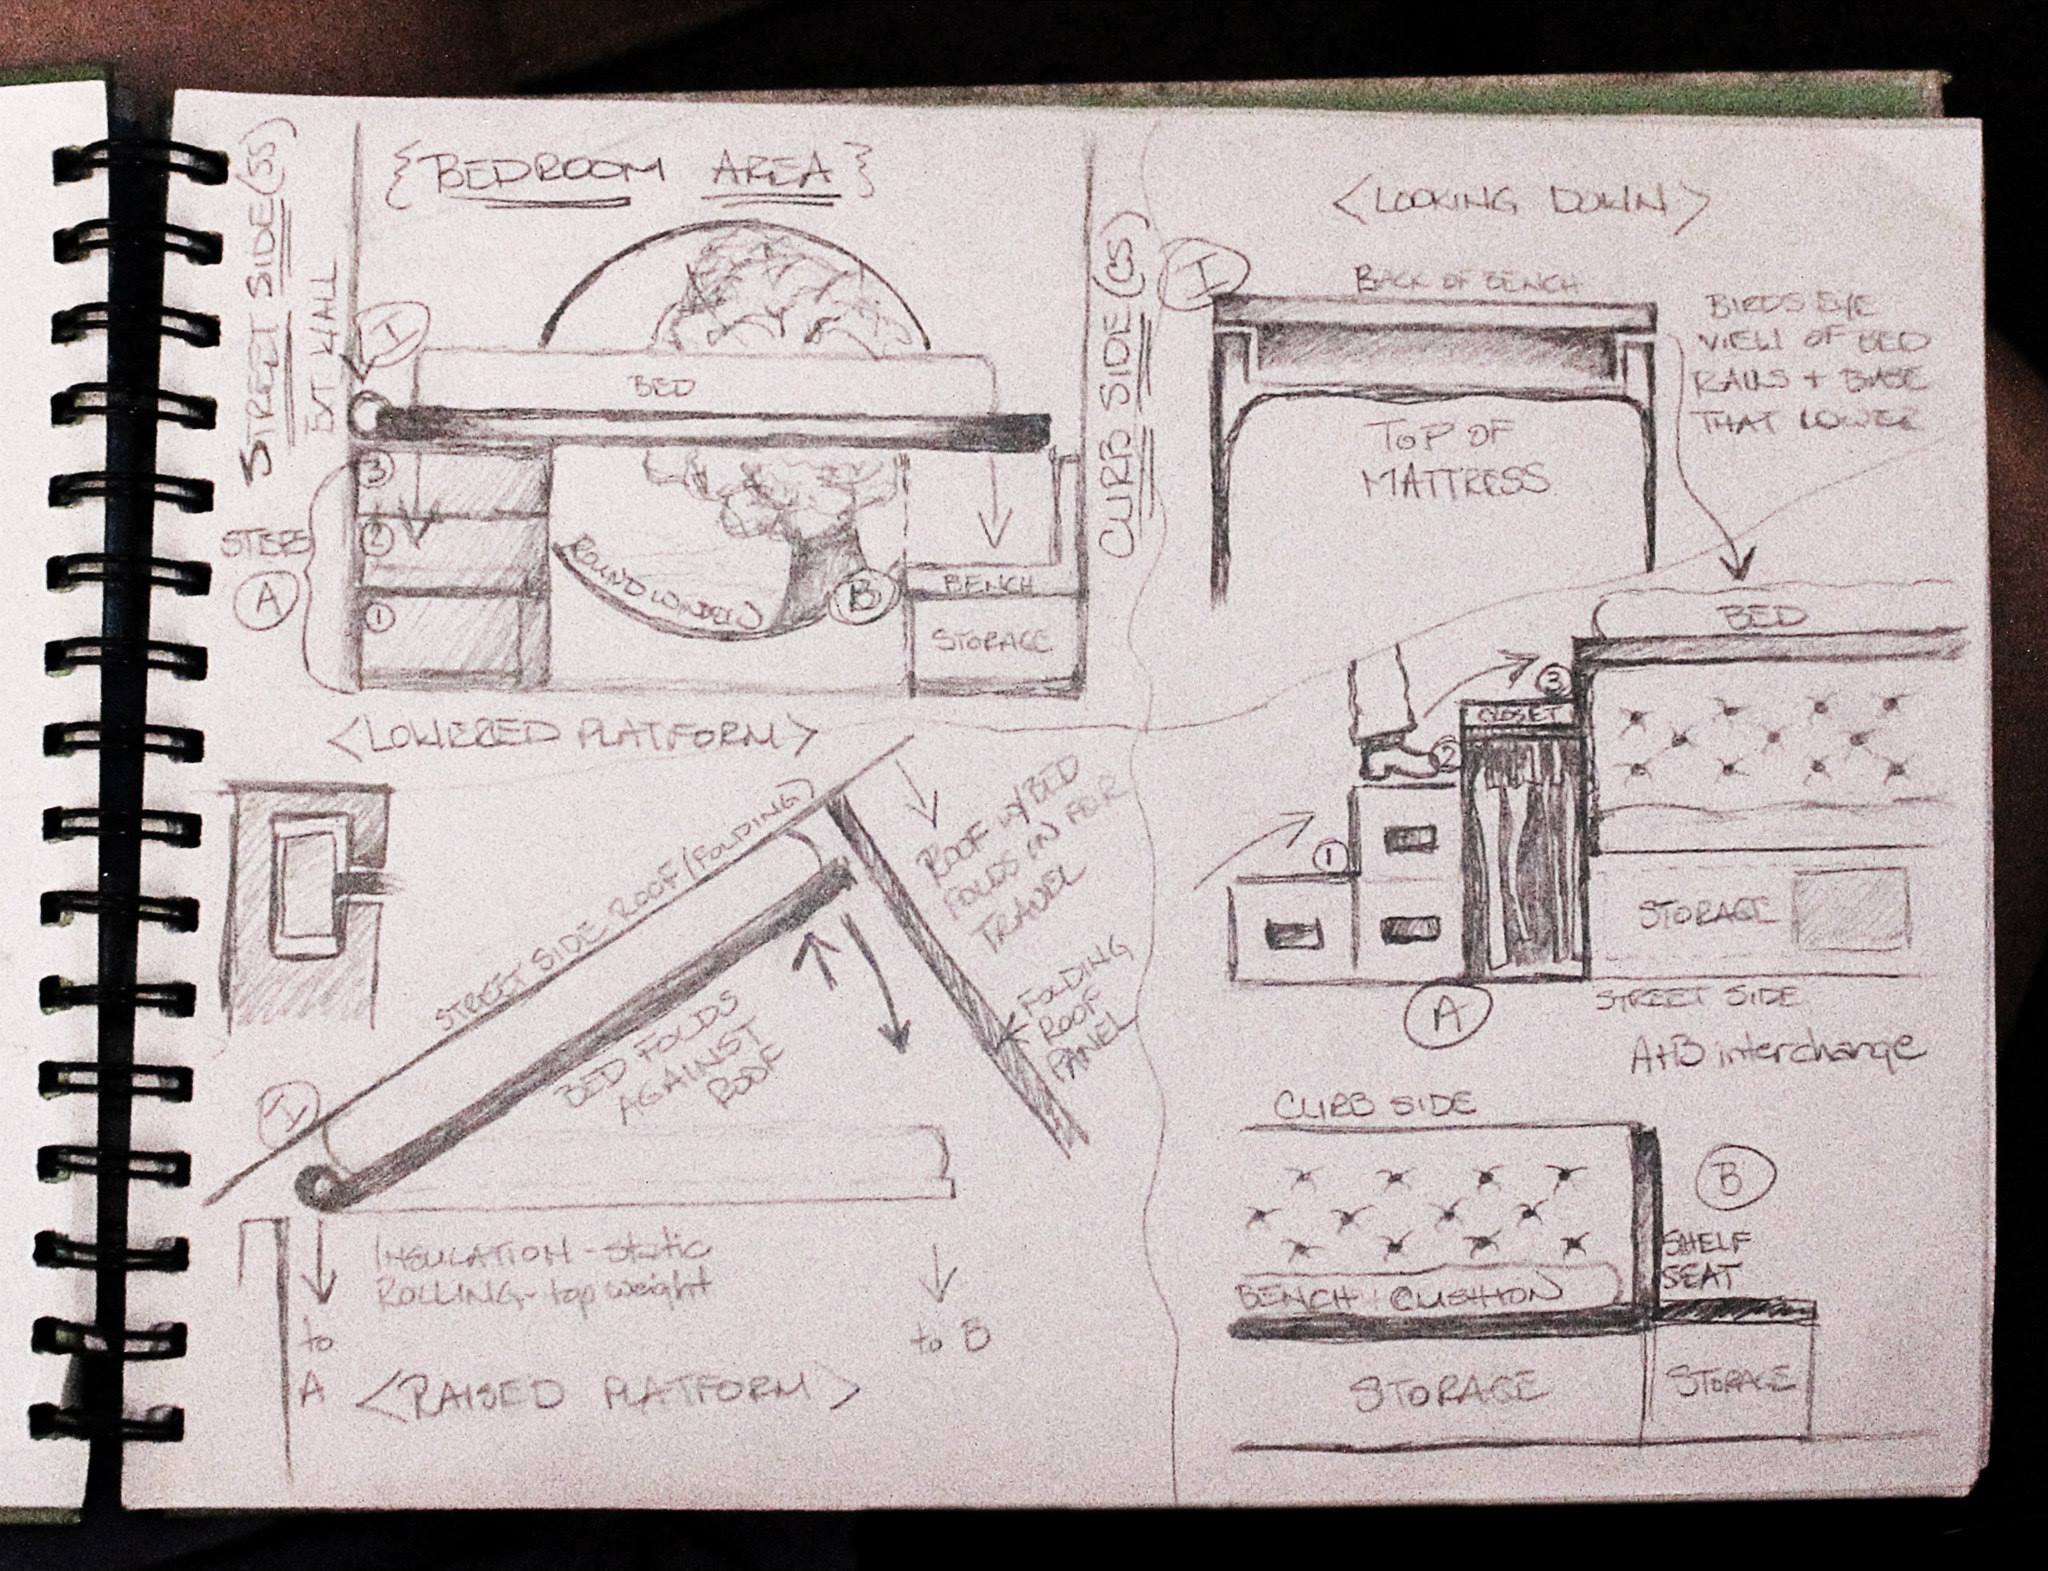 {BEDROOM AREA}
STREET SIDE (SS)
EXT WALL
I
BED
CURB SIDE (CS)
3
2
1
STEPS
A
ROUND WINDOW
B
BENCH
STORAGE
<LOWERED PLATFORM>
STREET SIDE-ROOF (FOLDING)
ROOF w/BED
FOLDS IN FOR
TRAVEL
FOLDING
ROOF
PANEL
BED FOLDS
AGAINST
ROOF
I
INSULATION - static
ROLLING - top weight
to
A
to B
<RAISED PLATFORM>
<LOOKING DOWN>
I
BACK OF BENCH
BIRDS EYE
VIEW OF BED
RAILS + BASE
THAT LOWER
TOP OF
MATTRESS
BED
3
CLOSET
2
1
STORAGE
A
STREET SIDE
A+B interchange
CURB SIDE
B
SHELF
SEAT
BENCH CUSHION
STORAGE
STORAGE